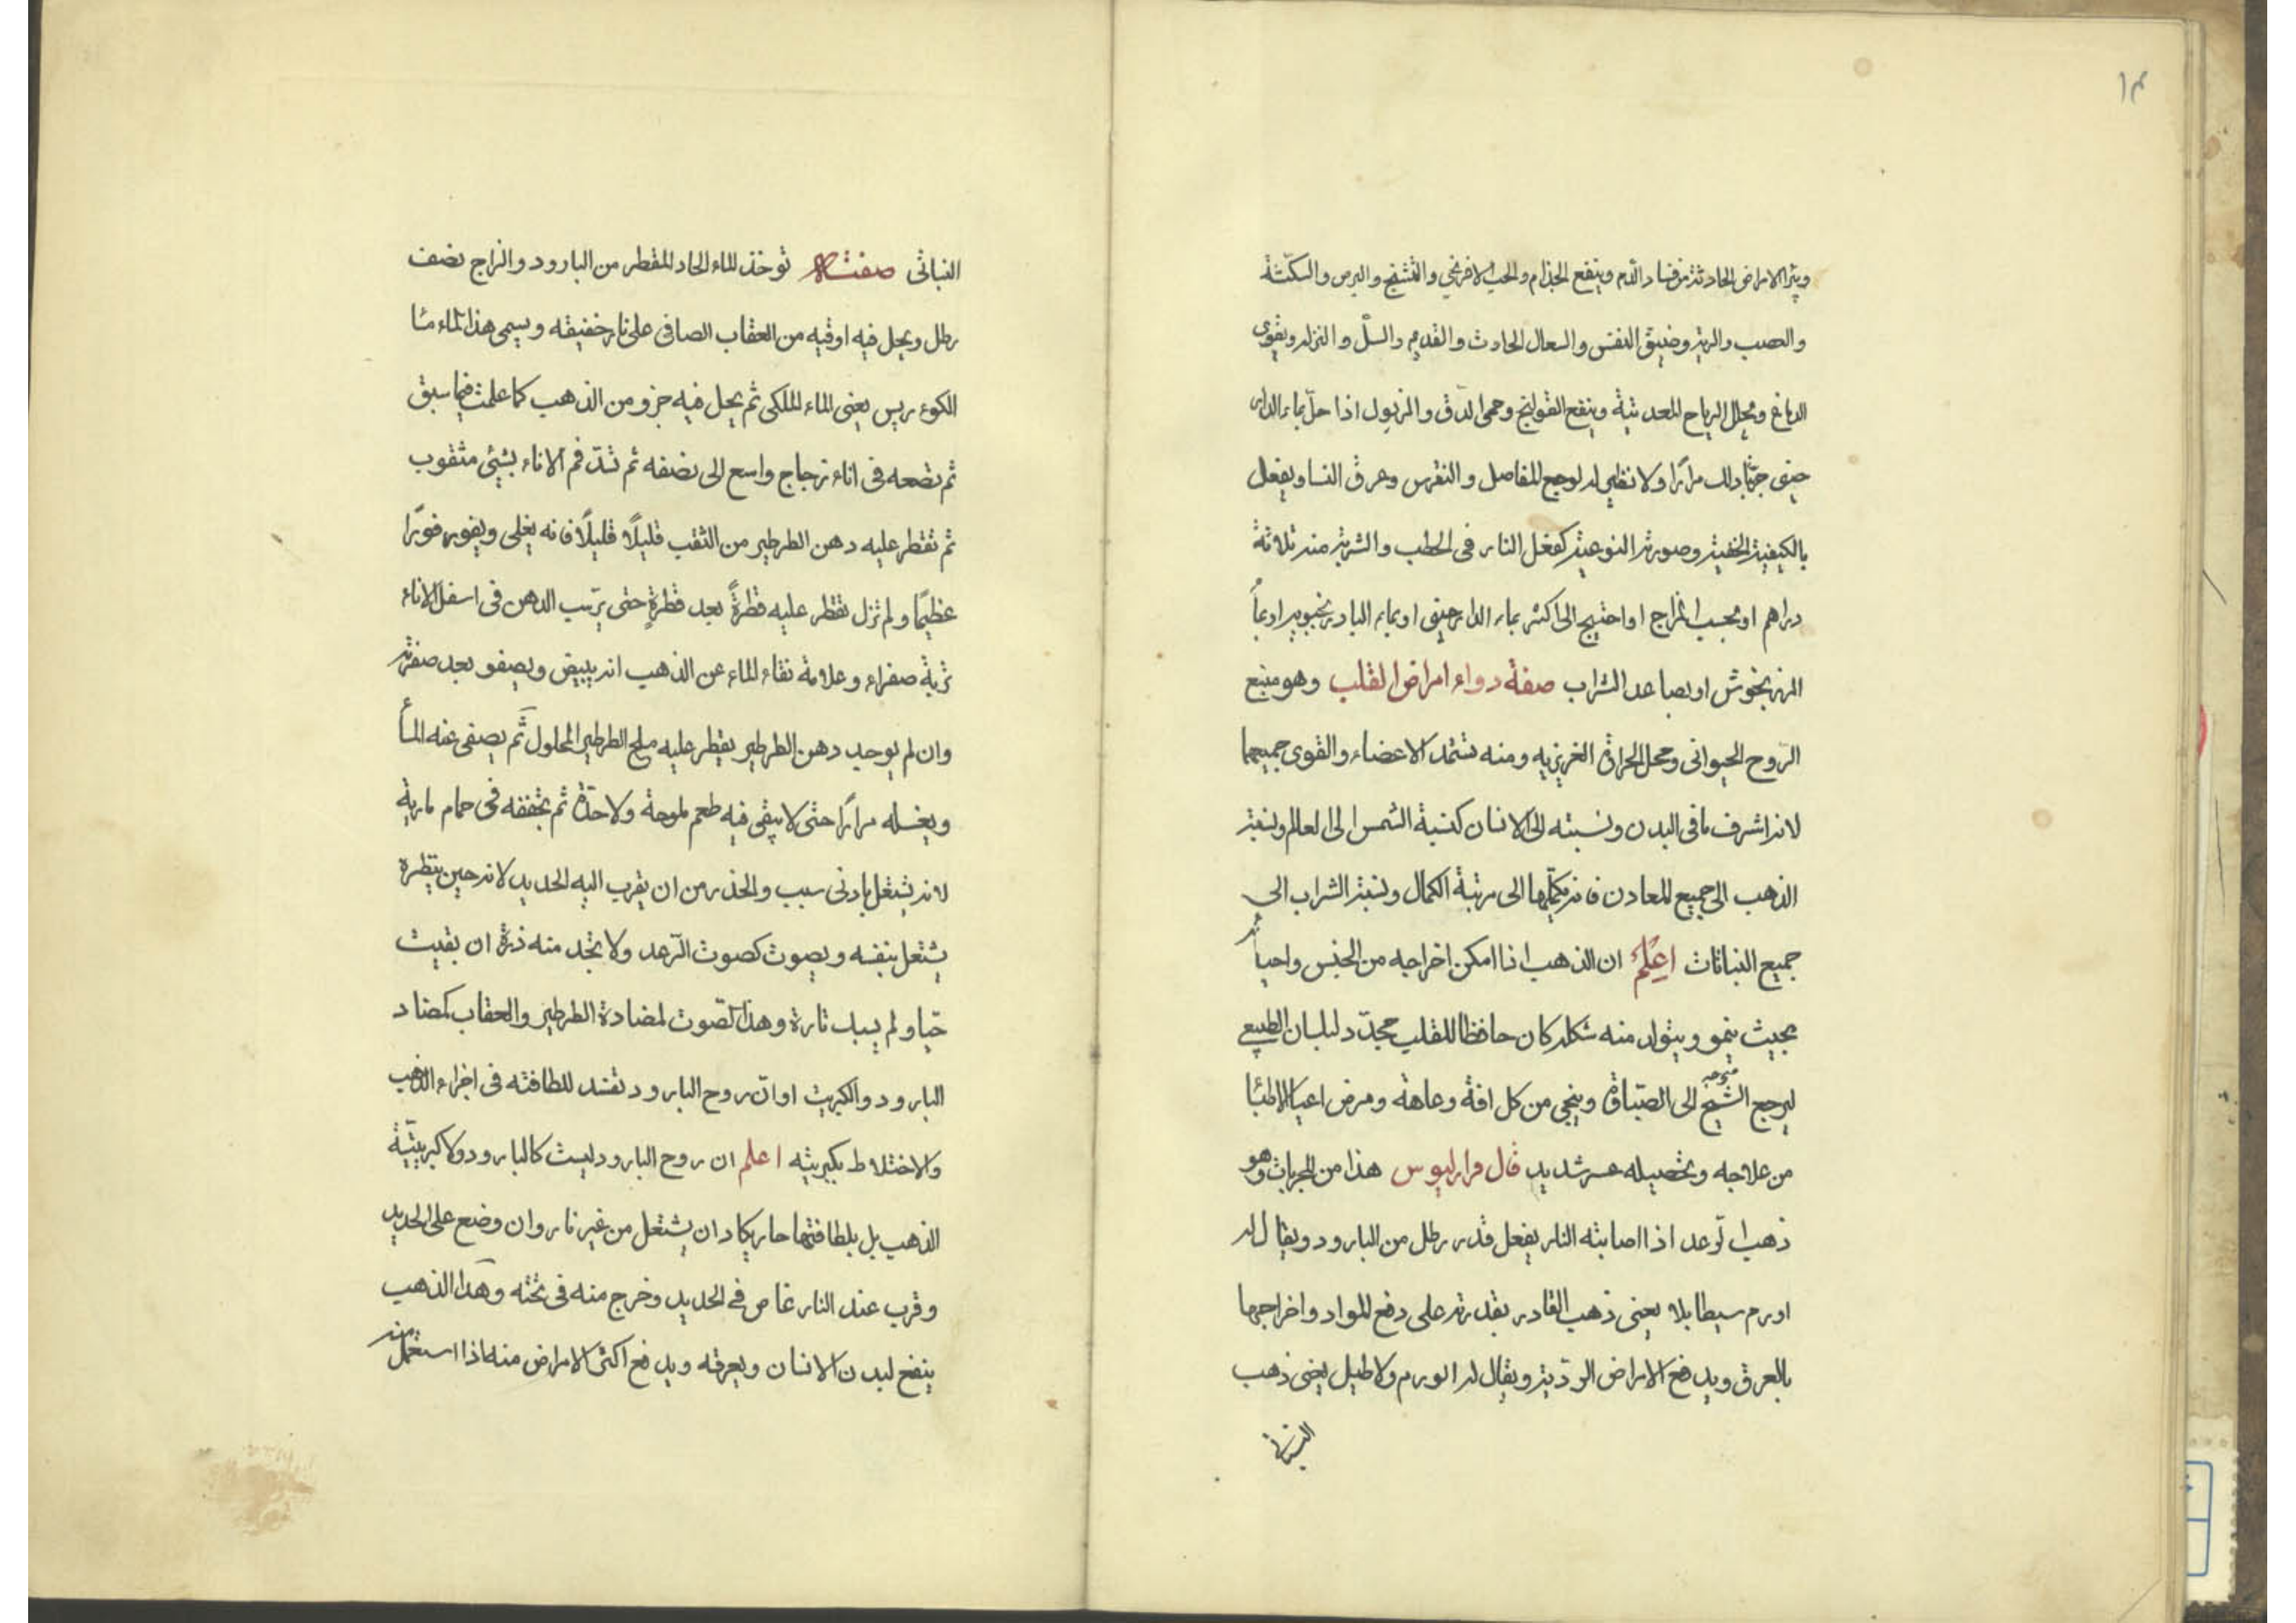 ١٣
ويبرئ الامراض الحادثة من فساد الدم وينفع الجذام والحب الافرنجي والتشنج والبرص والسكتة
والصب والربو وضيق النفس والسعال الحادث والقديم والسلّ والنزله ويقوى
الدماغ ويحلل الرياح المعدنية وينفع القولنج وحمى الدق والمزبول اذا حلّ بماء الدار
صينى جرّبنا ذلك مرارًا ولا نظير له لوجع المفاصل والنقرس وعرق النسا ويفعل
بالكيفية الخفية وصورته النوعية كفعل النار فى الحطب والشربة منه ثلاثة
دراهم او بحسب المزاج او احتيج الى اكثر بماء الدارصينى او بماء البادرنجبويه او بماء
المرزنجوش او بصاعد الشراب صفة دواء امراض القلب وهو منبع
الرّوح الحيوانى ومحل الحرارة الغريزيه ومنه تستمد الاعضاء والقوى جميعها
لانه اشرف ما فى البدن ونسبته الى الانسان كنسبة الشمس الى العالم ونسبة
الذهب الى جميع المعادن فانه يكمّلها الى مرتبة الكمال ونسبة الشراب الى
جميع النباتات اعلم ان الذهب اذا امكن اخراجه من الحبس واحيائه
بحيث ينمو ويتولد منه شكله كان حافظا للقلب مجدّد لبلسان الطبيعى
ليرجع الشيخ متوجه الى الصباوة وينجى من كل افة وعاهة ومرض اعيا الاطبّا
من علاجه وتحصيله عسر شديد قال قراراليوس هذا من المجربات وهو
ذهب الرّعد اذا اصابته النار يفعل قدر رطل من البارود ويقال له
اورم سيطابلا يعنى ذهب القادر بقدرته على دفع المواد واخراجها
بالعرق ويدفع الامراض الرديّة ويقال له اورم ولاطيل يعنى ذهب
النباتى
النباتى صفته توخذ الماء الحاد المقطر من البارود والزاج نصف
رطل ويحل فيه اوقيه من العقاب الصافى على نار خفيفه ويسمى هذا الماء مـا
الكوء ريس يعنى الماء الملكى ثم يحل فيه جزو من الذهب كما علمت فيما سبق
ثم تضعه فى اناء زجاج واسع الى نصفه ثم تسدّ فم الاناء بشيئ مثقوب
ثم تقطر عليه دهن الطرطير من الثقب قليلًا قليلًا فانه يغلى ويفور فورًا
عظيمًا ولم تزل تقطر عليه قطرةً بعد قطرةٍ حتى يرسب الدهن فى اسفل الاناء
تربة صفراء وعلامة نقاء الماء عن الذهب انه يبيض ويصفو بعد صفرته
وان لم يوجد دهن الطرطير يقطر عليه ملح الطرطير المحلول ثم يصفى عنه المأ
ويغسله مرارًا حتى لا يبقى فيه طعم ملوحة ولا حدّة ثم تجففه فى حمام مارية
لانه يشتعل بادنى سبب والحذر من ان يقرب اليه الحديد لانه حين يتطره
يشتعل بنفسه ويصوت كصوت الرّعد ولا تجد منه ذرة ان بقيت
حيا ولم يسبك تارة وهذا الصّوت لمضادة الطرطير والعقاب كمضاد
البارود والكبريت او انّ روح البارود تفسد للطافته فى اجزاء الذهب
والاختلاط بكبريته اعلم ان روح البارود ليست كالبارود ولا كبريتيّة
الذهب بل بلطافتها حار يكاد ان يشتعل من غير نار وان وضع على الحديد
وقرب عند النار غاص فى الحديد وخرج منه فى تحته وهذا الذهب
ينفع لبدن الانسان ويعرقه ويدفع اكثر الامراض منه اذا استعمل منه